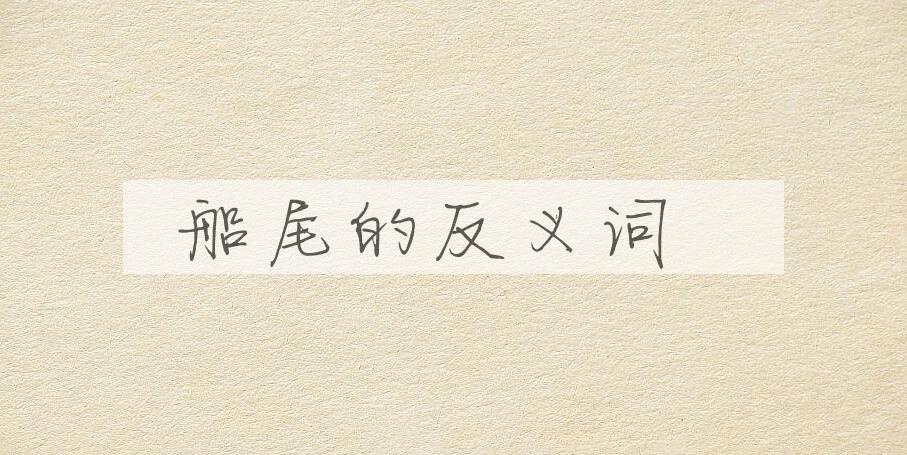 船尾的反义词